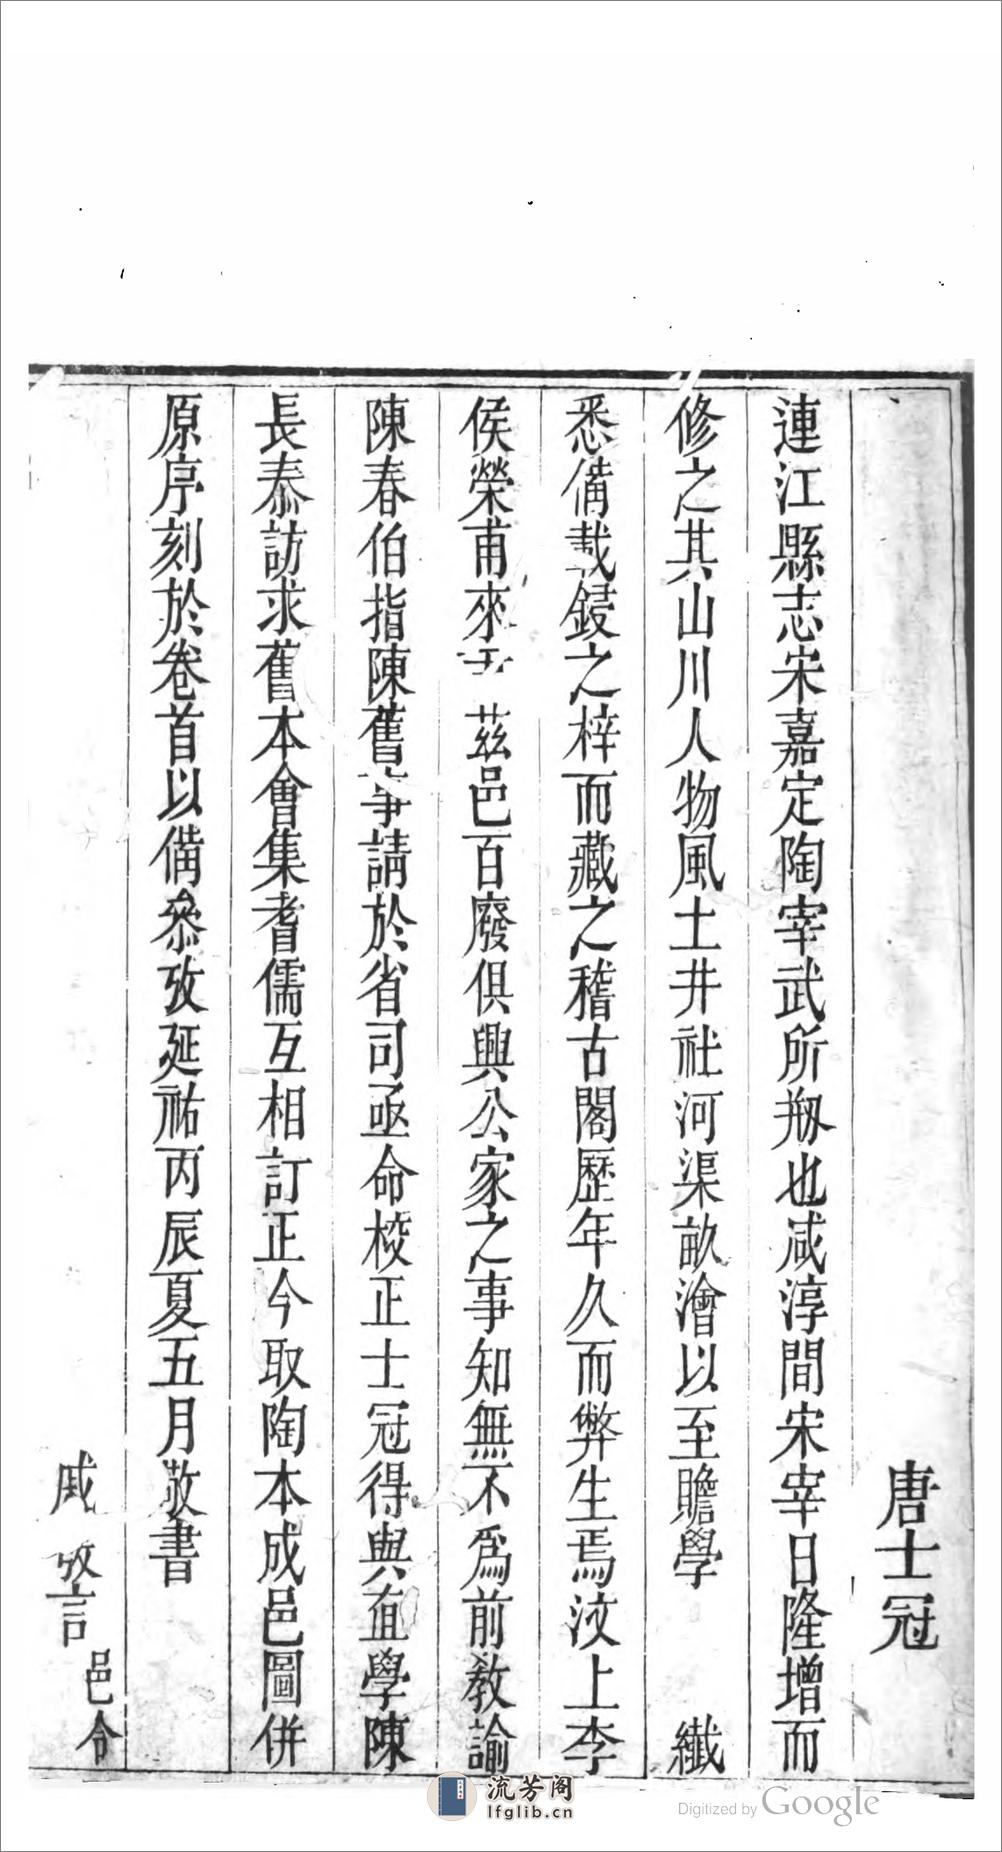 唐士冠
連江縣志宋嘉定陶宰武所剏也咸淳間宋宰日隆增而
修之其山川人物風土井社河渠畝澮以至贍學 纖
悉備載鋟之梓而藏之稽古閣歷年久而弊生焉汶上李
侯榮甫來 茲邑百廢俱興公家之事知無不爲前教諭
陳春伯指陳舊事請於省司亟命校正士冠得與直學陳
長泰訪求舊本會集耆儒互相訂正今取陶本成邑圖併
原序刻於卷首以備叅攷延祐丙辰夏五月敬書
戚 邑令
流芳阁
lfglib.cn
Digitized by Google